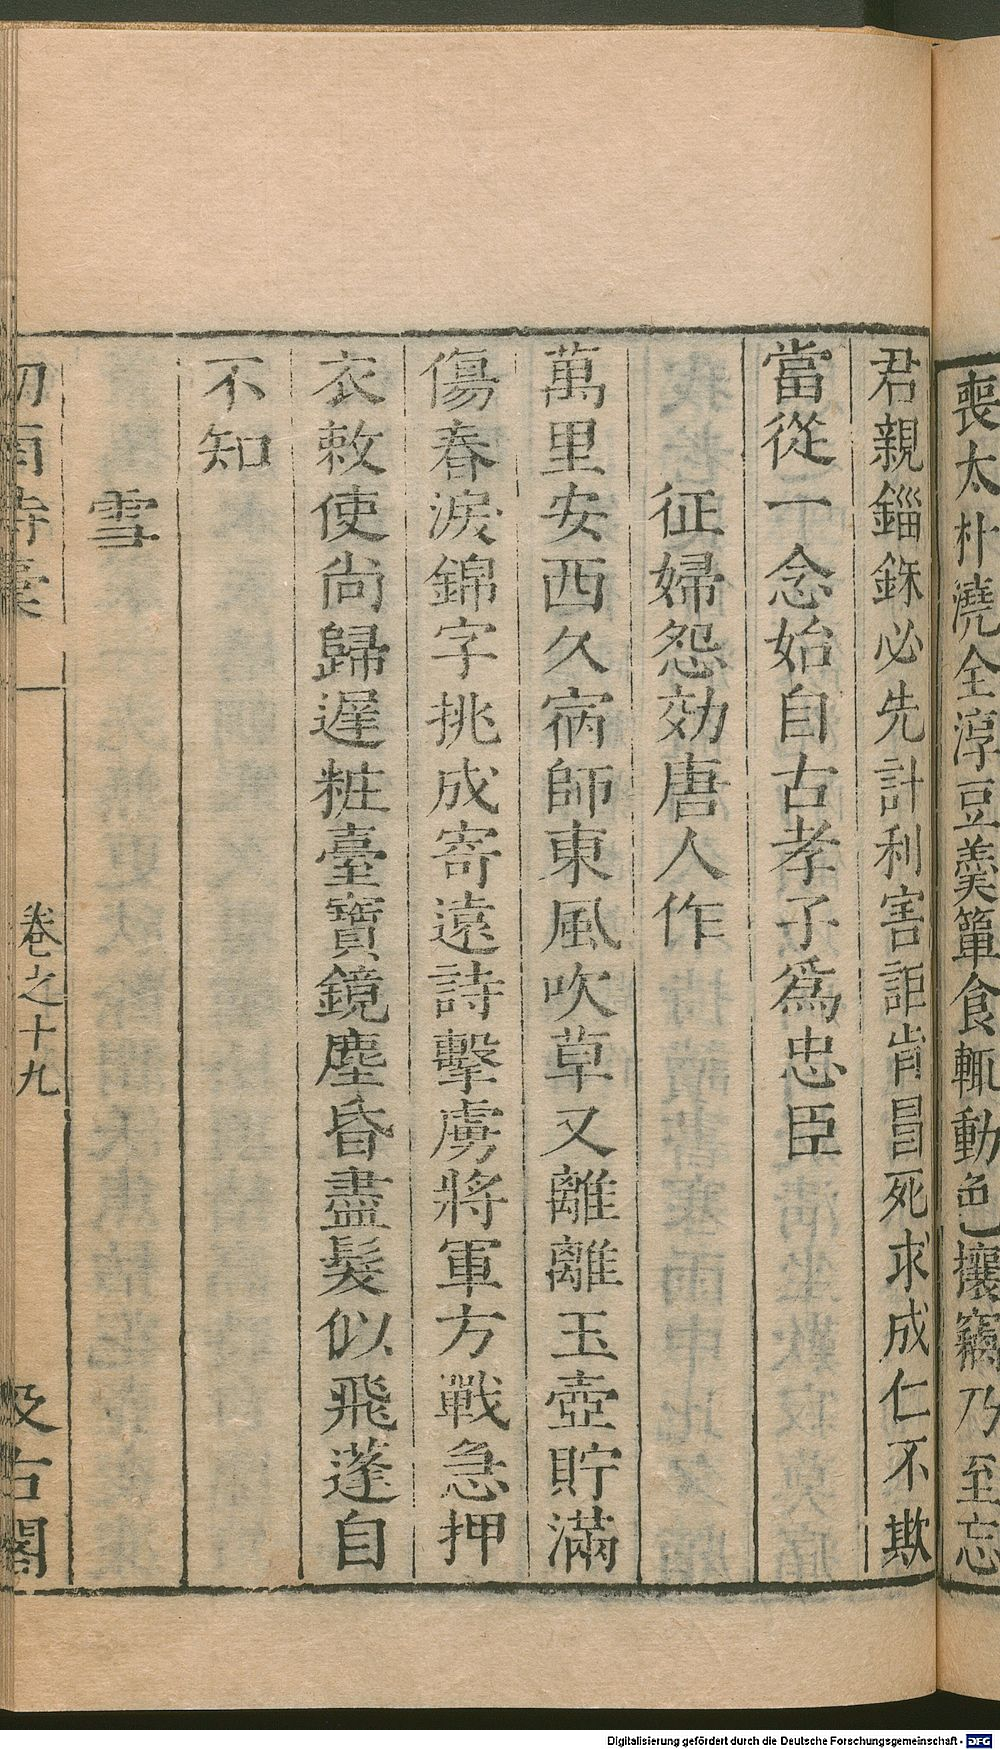 喪太朴澆全淳豆羹簞食輒動色攘竊乃至忘
君親錙銖必先計利害詎肯冒死求成仁不欺
當從一念始自古孝子爲忠臣
征婦怨効唐人作
萬里安西久宿師東風吹草又離離玉壺貯滿
傷春淚錦字挑成寄遠詩擊虜將軍方戰急押
衣敕使尚歸遲粧臺寶鏡塵昏盡髮似飛蓬自
不知
雪
劒南詩稾
卷之十九
汲古閣
Digitalisierung gefördert durch die Deutsche Forschungsgemeinschaft - DFG